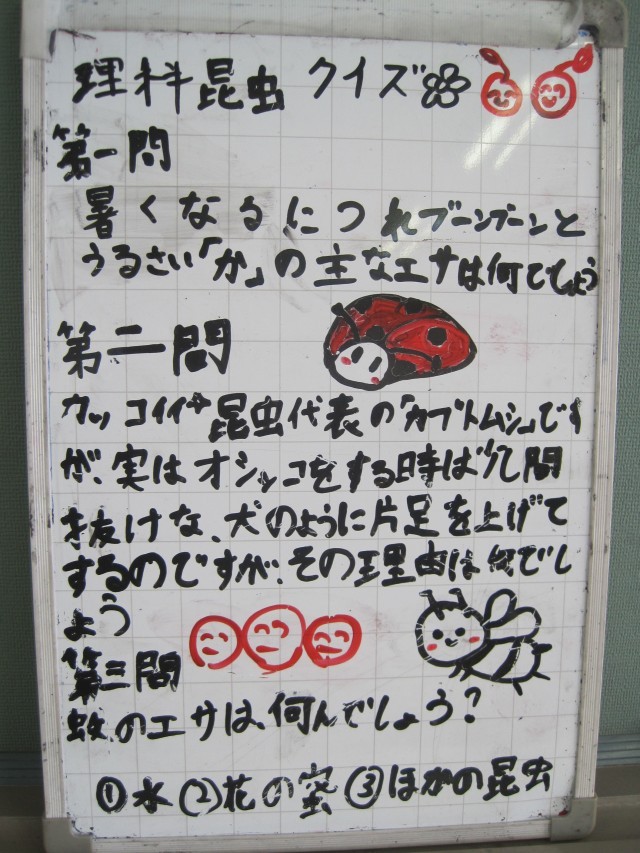 理科昆虫 クイズ
第一問
暑くなるにつれブーンブーンと
うるさい「か」の主なエサは何ででしょう
第二問
カッコイイ 昆虫代表の「カブトムシ」です
が、実はオシッコをする時は 間
抜けな、犬のように片足を上げて
するのですが、その理由は何でし
ょう
第三問
蚊のエサは、何んでしょう?
①水②花の蜜③ほかの昆虫